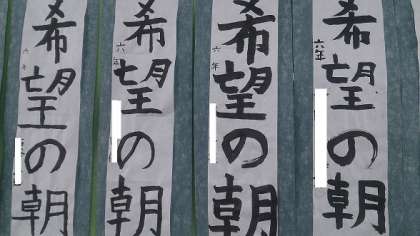 希望の朝
六年
希望の朝
六年
希望の朝
六年
希望の朝
六年